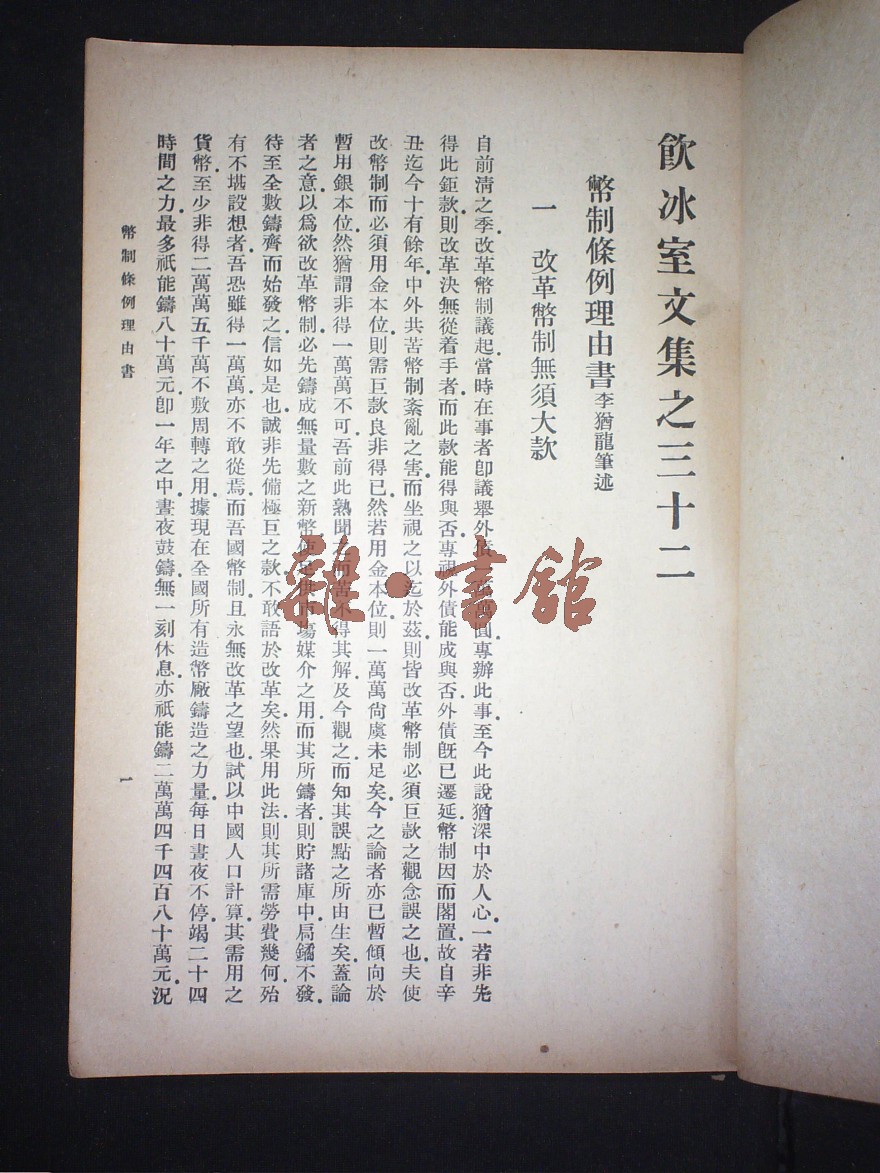 飮冰室文集之三十二
幣制條例理由書 李猶龍筆述
一 改革幣制無須大款
自前淸之季.改革幣制議起.當時在事者卽議舉外債一圓專辦此事.至今此說猶深中於人心.一若非先
得此鉅款.則改革決無從着手者.而此款能得與否.專視外債能成與否.外債旣已遷延.幣制因而閣置.故自辛
丑迄今十有餘年.中外共苦幣制紊亂之害.而坐視之以迄於茲.則皆改革幣制必須巨款之觀念誤之也.夫使
改幣制而必須用金本位.則需巨款良非得已.然若用金本位.則一萬萬尙虞未足矣.今之論者亦已暫傾向於
暫用銀本位.然猶謂非得一萬萬不可.吾前此熟聞而苦不得其解.及今觀之.而知其誤點之所由生矣.蓋論
者之意.以爲欲改革幣制.必先鑄成無量數之新幣.使供市場媒介之用.而其所鑄者.則貯諸庫中.扃鐍不發.
待至全數鑄齊而始發之.信如是也.誠非先備極巨之款.不敢語於改革矣.然果用此法.則其所需勞費幾何.殆
有不堪設想者.吾恐雖得一萬萬.亦不敢從焉.而吾國幣制.且永無改革之望也.試以中國人口計算.其需用之
貨幣.至少非得二萬萬五千萬不敷周轉之用.據現在全國所有造幣廠鑄造之力量.每日晝夜不停.竭二十四
時間之力.最多祇能鑄八十萬元.卽一年之中.晝夜鼓鑄.無一刻休息.亦祇能鑄二萬萬四千四百八十萬元.況
幣制條例理由書
一
雜·書館